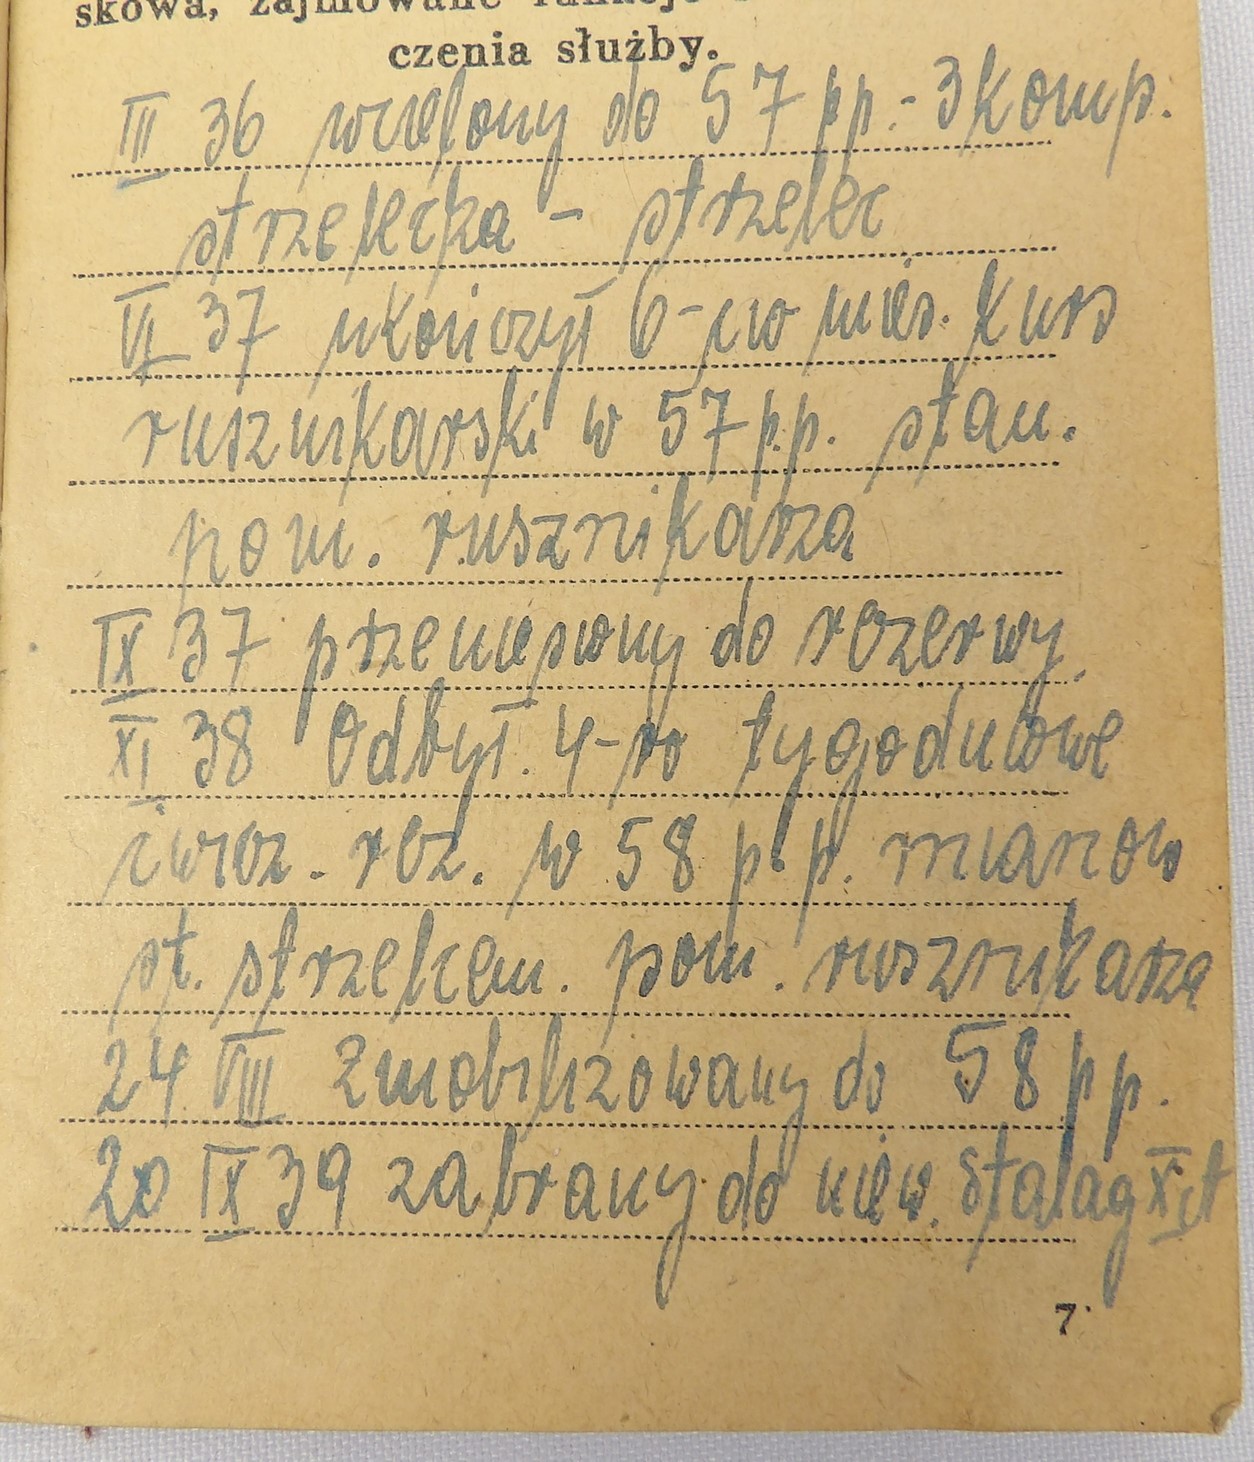 skowa, zajmowane funkcje
czenia służby.
III 36 wcielony do 57 pp. - 3 komp.
strzelecka - strzelec
VI 37 ukończył 6-cio mies. kurs
rusznikarski w 57 p.p. stan.
pom. rusznikarza
IX 37 przeniesiony do rezerwy
XI 38 Odbył 4-ro tygodniowe
ćwicz. rez. w 58 p.p. mianow
st. strzelcem. pom. rusznikarza
24 VIII Zmobilizowany do 58 pp.
20 IX 39 zabrany do niew. Stalag
7